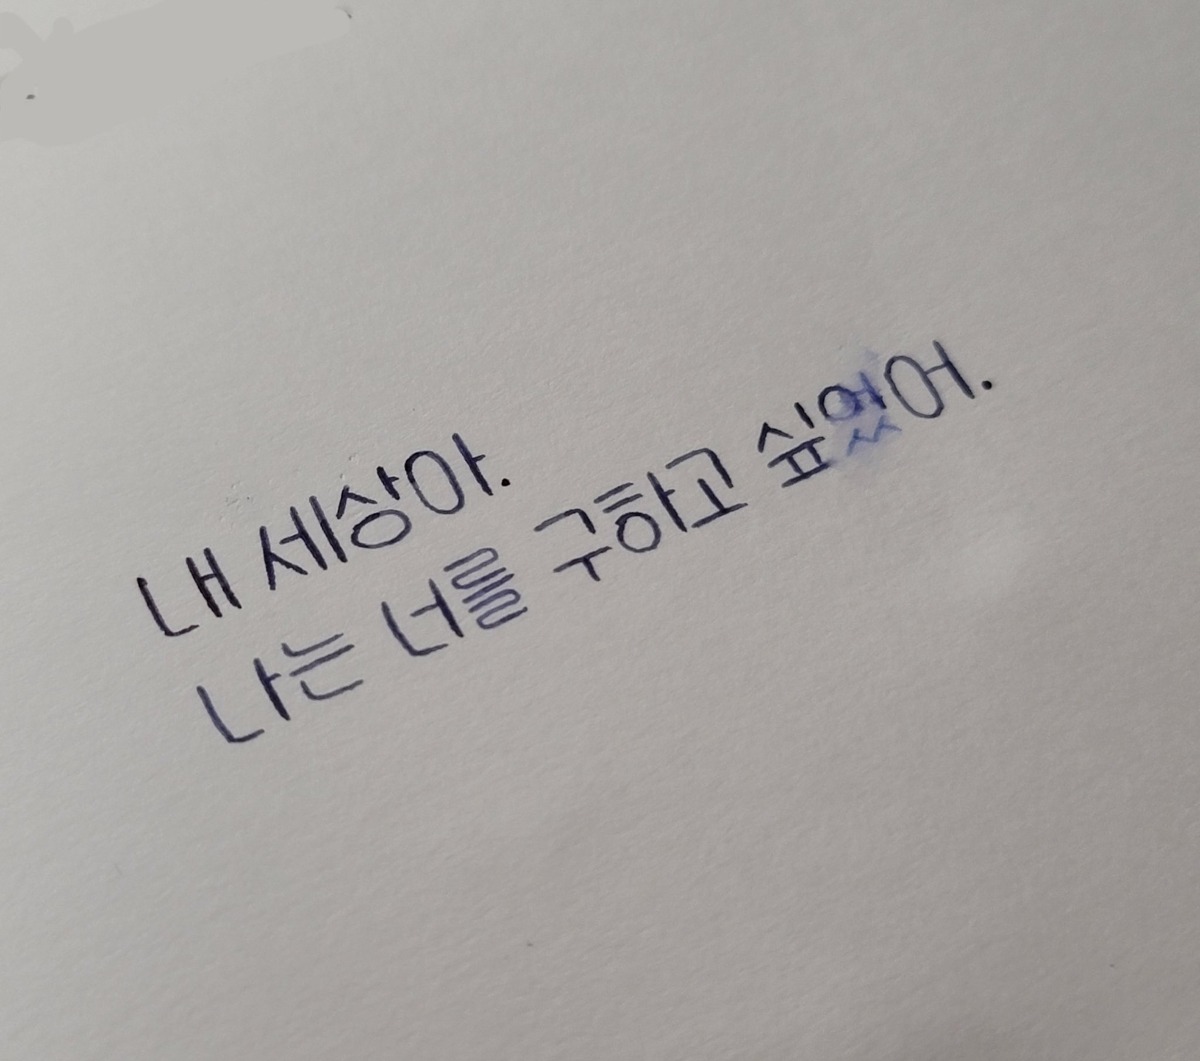 내 세상아.
나는 너를 구하고 싶었어.